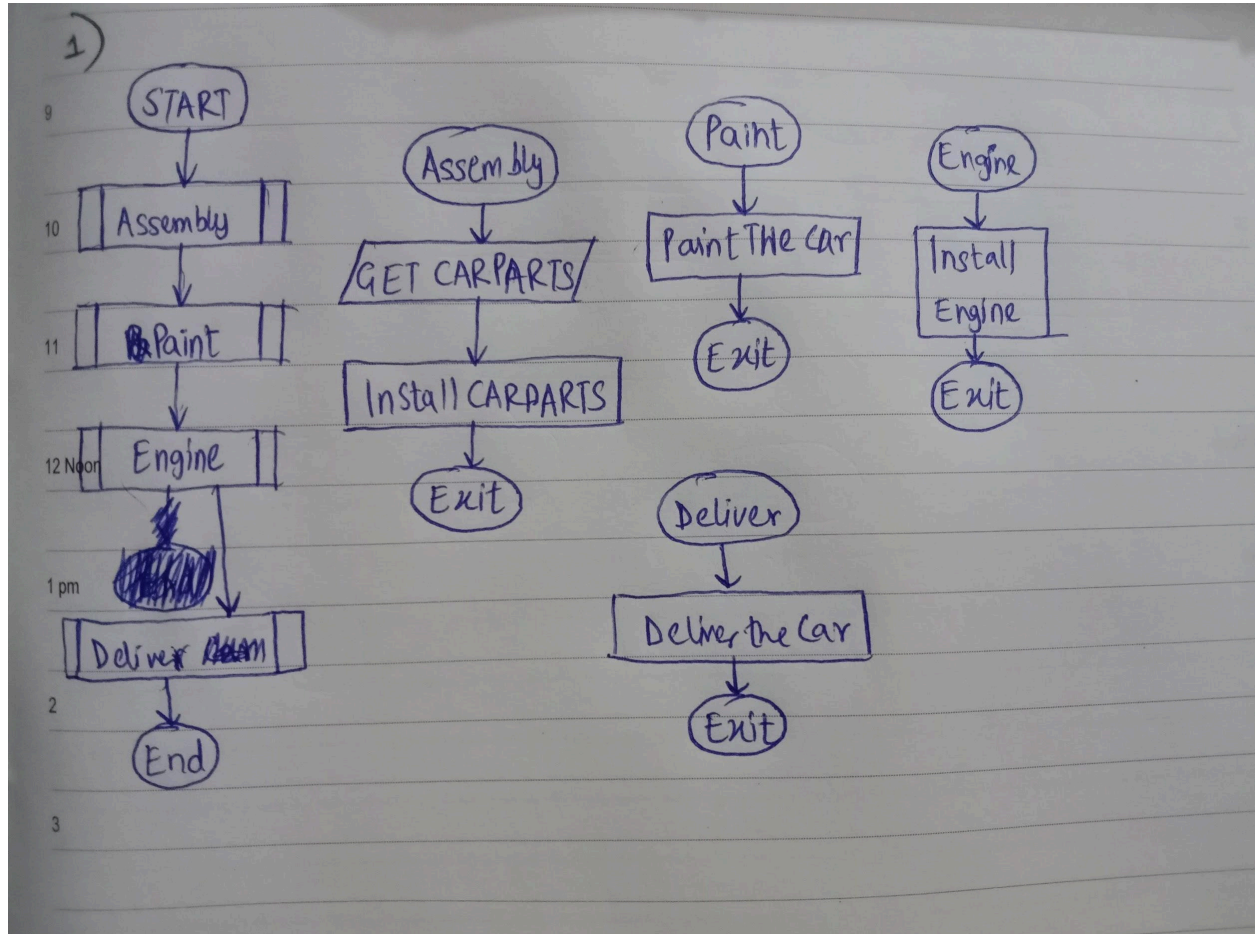 1)
9
START
10
Assembly
11
Paint
12 Noon
Engine
1 pm
Deliver
2
End
3
Assembly
GET CARPARTS
Install CARPARTS
Exit
Paint
Paint THE Car
Exit
Engine
Install
Engine
Exit
Deliver
Deliver the Car
Exit